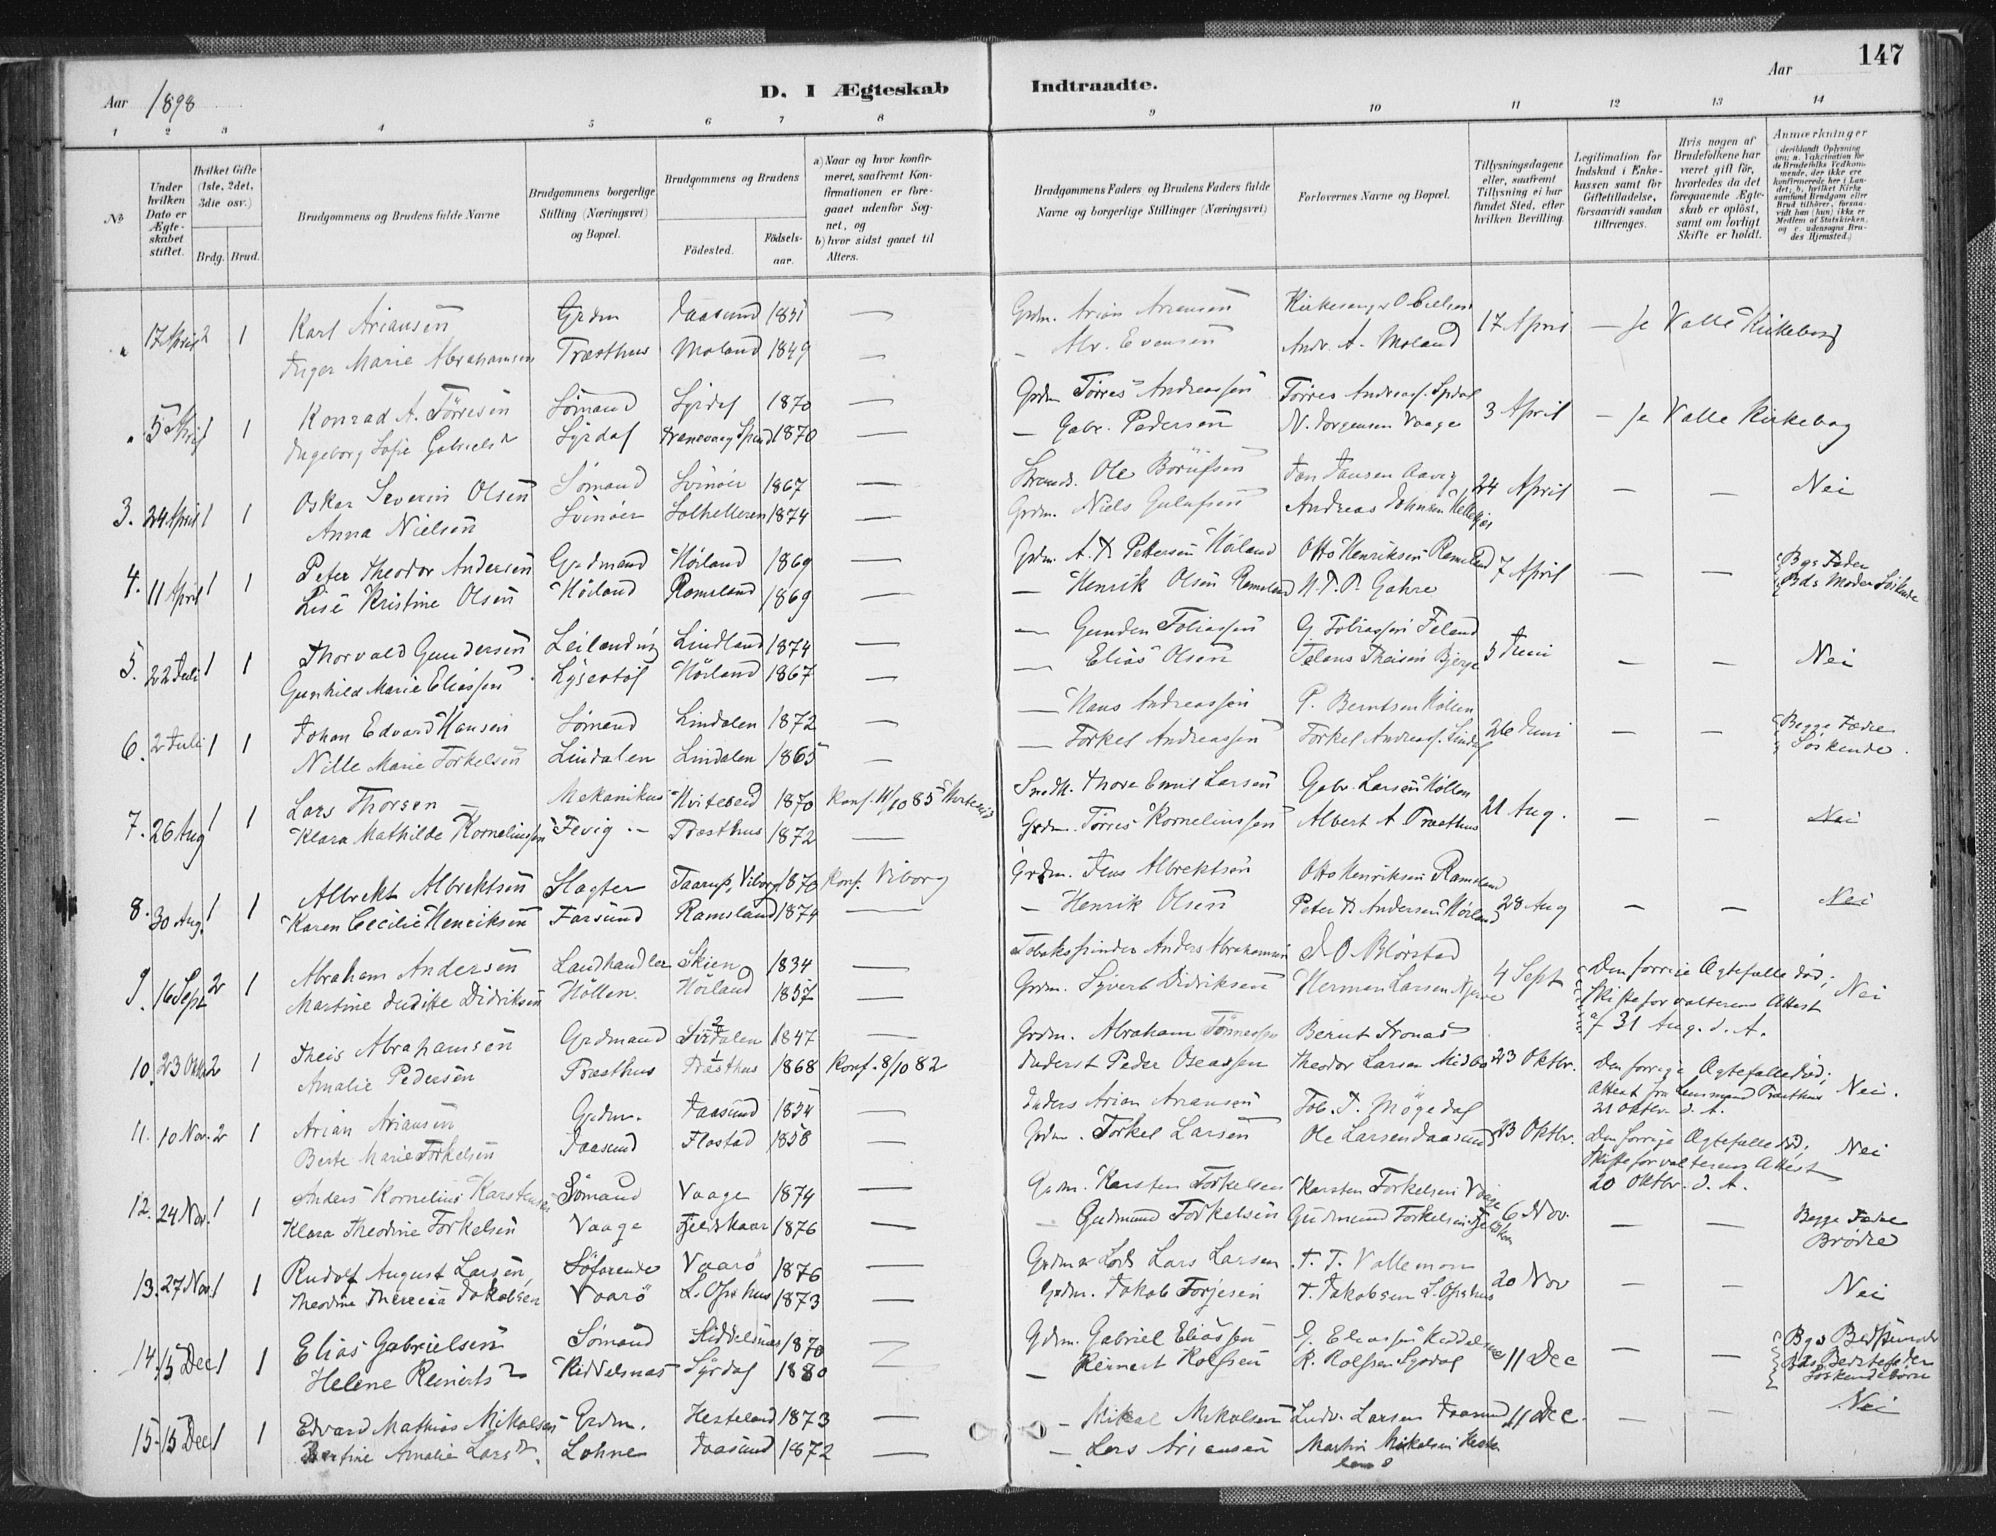 147
Aar 1898
D. I Ægteskab Indtraadte.
Aar
1 2 3 4 5 6 7 8 9 10 11 12 13 14
№
Under hvilken Dato er Ægteskabet stiftet.
Hvilket Gifte (1ste, 2det, 3die osv.)
Brdg. Brud.
Brudgommens og Brudens fulde Navne
Brudgommens borgerlige Stilling (Næringsvei) og Bopæl.
Brudgommens og Brudens
Fødested. Fødselsaar.
a) Naar og hvor konfirmeret, saafremt Konfirmationen er foregaaet udenfor Sognet, og
b) hvor sidst gaaet til Alters.
Brudgommens Faders og Brudens Faders fulde Navne og borgerlige Stillinger (Næringsvei)
Forlovernes Navne og Bopæl.
Tillysningsdagene eller, saafremt Tillysning ei har fundet Sted, efter hvilken Bevilling.
Legitimation for Indskud i Enkekassen samt for Giftetilladelse, forsaavidt saadan tiltrænges.
Hvis nogen af Brudefolkene har været gift før, hvorledes da det foregaaende Ægteskab er opløst, samt om lovligt Skifte er holdt.
Anmærkninger
17 April 2 1 Karl Ariansen Grdm Jaasund 1851 — Grdm. Arian Ariansen Kirkesanger O. 17 April — se Valle Kirkebog
Inger Marie Abrahamsen Træsthus Moland 1849 — — Abr. Evensen Andr. A. Moland
5 April 1 Konrad A. Tørresen Sømand Syrdal 1870 — Grdm Tørres Andreassen Tørres Andreass. Syrdal 3 April — se Valle Kirkebog
Ingeborg Sofie Gabriels d Syrdal 1870 — — Gabr. Pedersen N. Jørgensen Vaage
3. 24 April 1 1 Oskar Severin Olsen Sømand Svinør 1867 — Ole Børufsen Jan Jansen Aavig 24 April — — Nei
Anna Nielsen Svinør Solhelleren 1874 — Grdm. Niels Andreas Johnsen
4. 11 April 1 1 Peter Theodor Andersen Grdmand Hørland 1869 — Grdm. A. T. Pettersen Hørland Otto Henriksen Ramsland 7 April — — Bgs Fader
Lise Kristine Olsen Hørland Ramsland 1869 — Henrik Olsen Ramsland N. T. P. Gahre Bds Moder Søskende
5. 22 Juli 1 1 Thorvald Gundersen Lindland 1874 — — Gunden Tobiassen G. Tobiassen Feland 5 Juni — — Nei
Gunhild Marie Eliassen Hørland 1867 — — Elias Olsen Theisen Bjerge
6. 2 Juli 1 1 Johan Edvard Hansen Sømand Lindalen 1872 — — Hans Andreassen P. Berntsen Høllen 26 Juni — — Begge Fædre
Nille Marie Torkelsen Lindalen Lindalen 1865 — — Torkel Andreassen Torkel Andreass. Lindal Søskende.
7. 26 Aug 1 1 Lars Thorsen Mekanikus Hviteseid 1870 Konf. 11/10 85 Hviteseid Smedk. Thore Emil Larsen Gabr. Larsen Høllen 21 Aug. — — Nei
Klara Mathilde Korneliussen Fevig Træsthus 1872 — Grdm. Tørres Korneliussen Albert A Træsthus
8. 30 Aug. 1 1 Albrekt Albrektsen Slagter Taarup, Viborg 1870 Konf. Viborg Grdm. Jens Albrektsen Otto Henriksen Ramsland 28 Aug — — Nei
Karen Cecilie Henriksen Farsund Ramsland 1874 — — Henrik Olsen Peter T. Andersen Hørland
9. 16 Sept 2 1 Abraham Andersen Landhandler Skien 1834 — Tobaksspinder Anders Abrahamsen 4 Sept Den forrige Ægtefælle død; Nei
Martine Juditte Didriksen Høllen. Hørland 1857 — Grdm. Syvert Didriksen Herman Larsen Njerve Skifteforvalterens Attest
af 31 Aug. d. A.
10. 23 Oktbr 2 1 Theis Abrahamsen Grdmand 1847 — Grdm. Abraham Tønnessen Bernt Sronas 23 Oktbr. Den forrige Ægtefælle død; Nei.
Amalie Pedersen Træsthus Træsthus 1868 Konf. 8/10 82 Inderst Peder Oseassen Theodor Larsen Midbø Attest fra Lensmand Træsthus
21 Oktbr. d. A.
11. 10 Nov. 2 1 Arian Ariansen Grdm. Jaasund 1854 — Inders Arian Ariansen Tob. T. Møgedal 23 Oktbr. Den forrige Ægtefælle død; Nei
Berte Marie Torkelsen Jaasund Flostad 1858 — Grdm. Torkel Larsen Ole Larsen Jaasund Skifteforvalterens Attest
20 Oktbr. d. A.
12. 24 Nov. 1 1 Anders Kornelius Karstensen Sømand Vaage 1874 — Grdm. Karsten Torkelsen Karsten Torkelsen Vaage 6 Nov. — — Begge Fædre
Klara Theodine Torkelsen Vaage Fjeldskaar 1876 — — Gudmund Torkelsen Gudmund Torkelsen Fjeldskaar Brødre
13. 27 Nov. 1 1 Rudolf August Larsen Søfarende Vaarø 1876 — Grdm & Lods Lars Larsen T. T. Vallemon 20 Nov — — Nei
Theodine Theresea Jakobsen Vaarø L. Ofsthus 1873 — Grdm. Jakob Torjesen T. Jakobsen L. Ofsthus
14. 15 Dec 1 1 Elias Gabrielsen Sømand Kiddelsnas 1870 — Grdm. Gabriel Eliassen G. Eliassen Kiddelsnas 11 Dec — — Bgs Bedstemoder
Helene Reinerts d Kiddelsnas Syrdal 1880 — — Reinert Rolfsen R. Rolfsen Syrdal Bds Bedstefader
Søskendebørn
15. 15 Dec 1 1 Edvard Mathias Mikalsen Grdm. Hesteland 1873 — — Mikal Mikalsen Ludv. Larsen Jaasund 11 Dec. — — Nei
Bertine Amalie Lars d. Lohne Jaasund 1872 — — Lars Ariansen Martin Mikalsen Hesteland